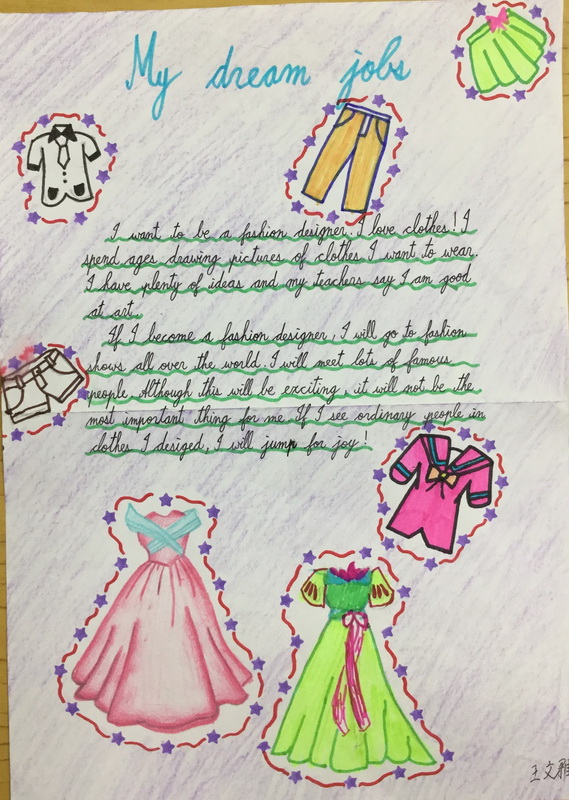 My dream jobs
I want to be a fashion designer. I love clothes! I
spend ages drawing pictures of clothes I want to wear.
I have plenty of ideas and my teachers say I am good
at art.
If I become a fashion designer, I will go to fashion
shows all over the world. I will meet lots of famous
people. Although this will be exciting, it will not be the
most important thing for me. If I see ordinary people in
clothes I desiged, I will jump for joy!
王文雅